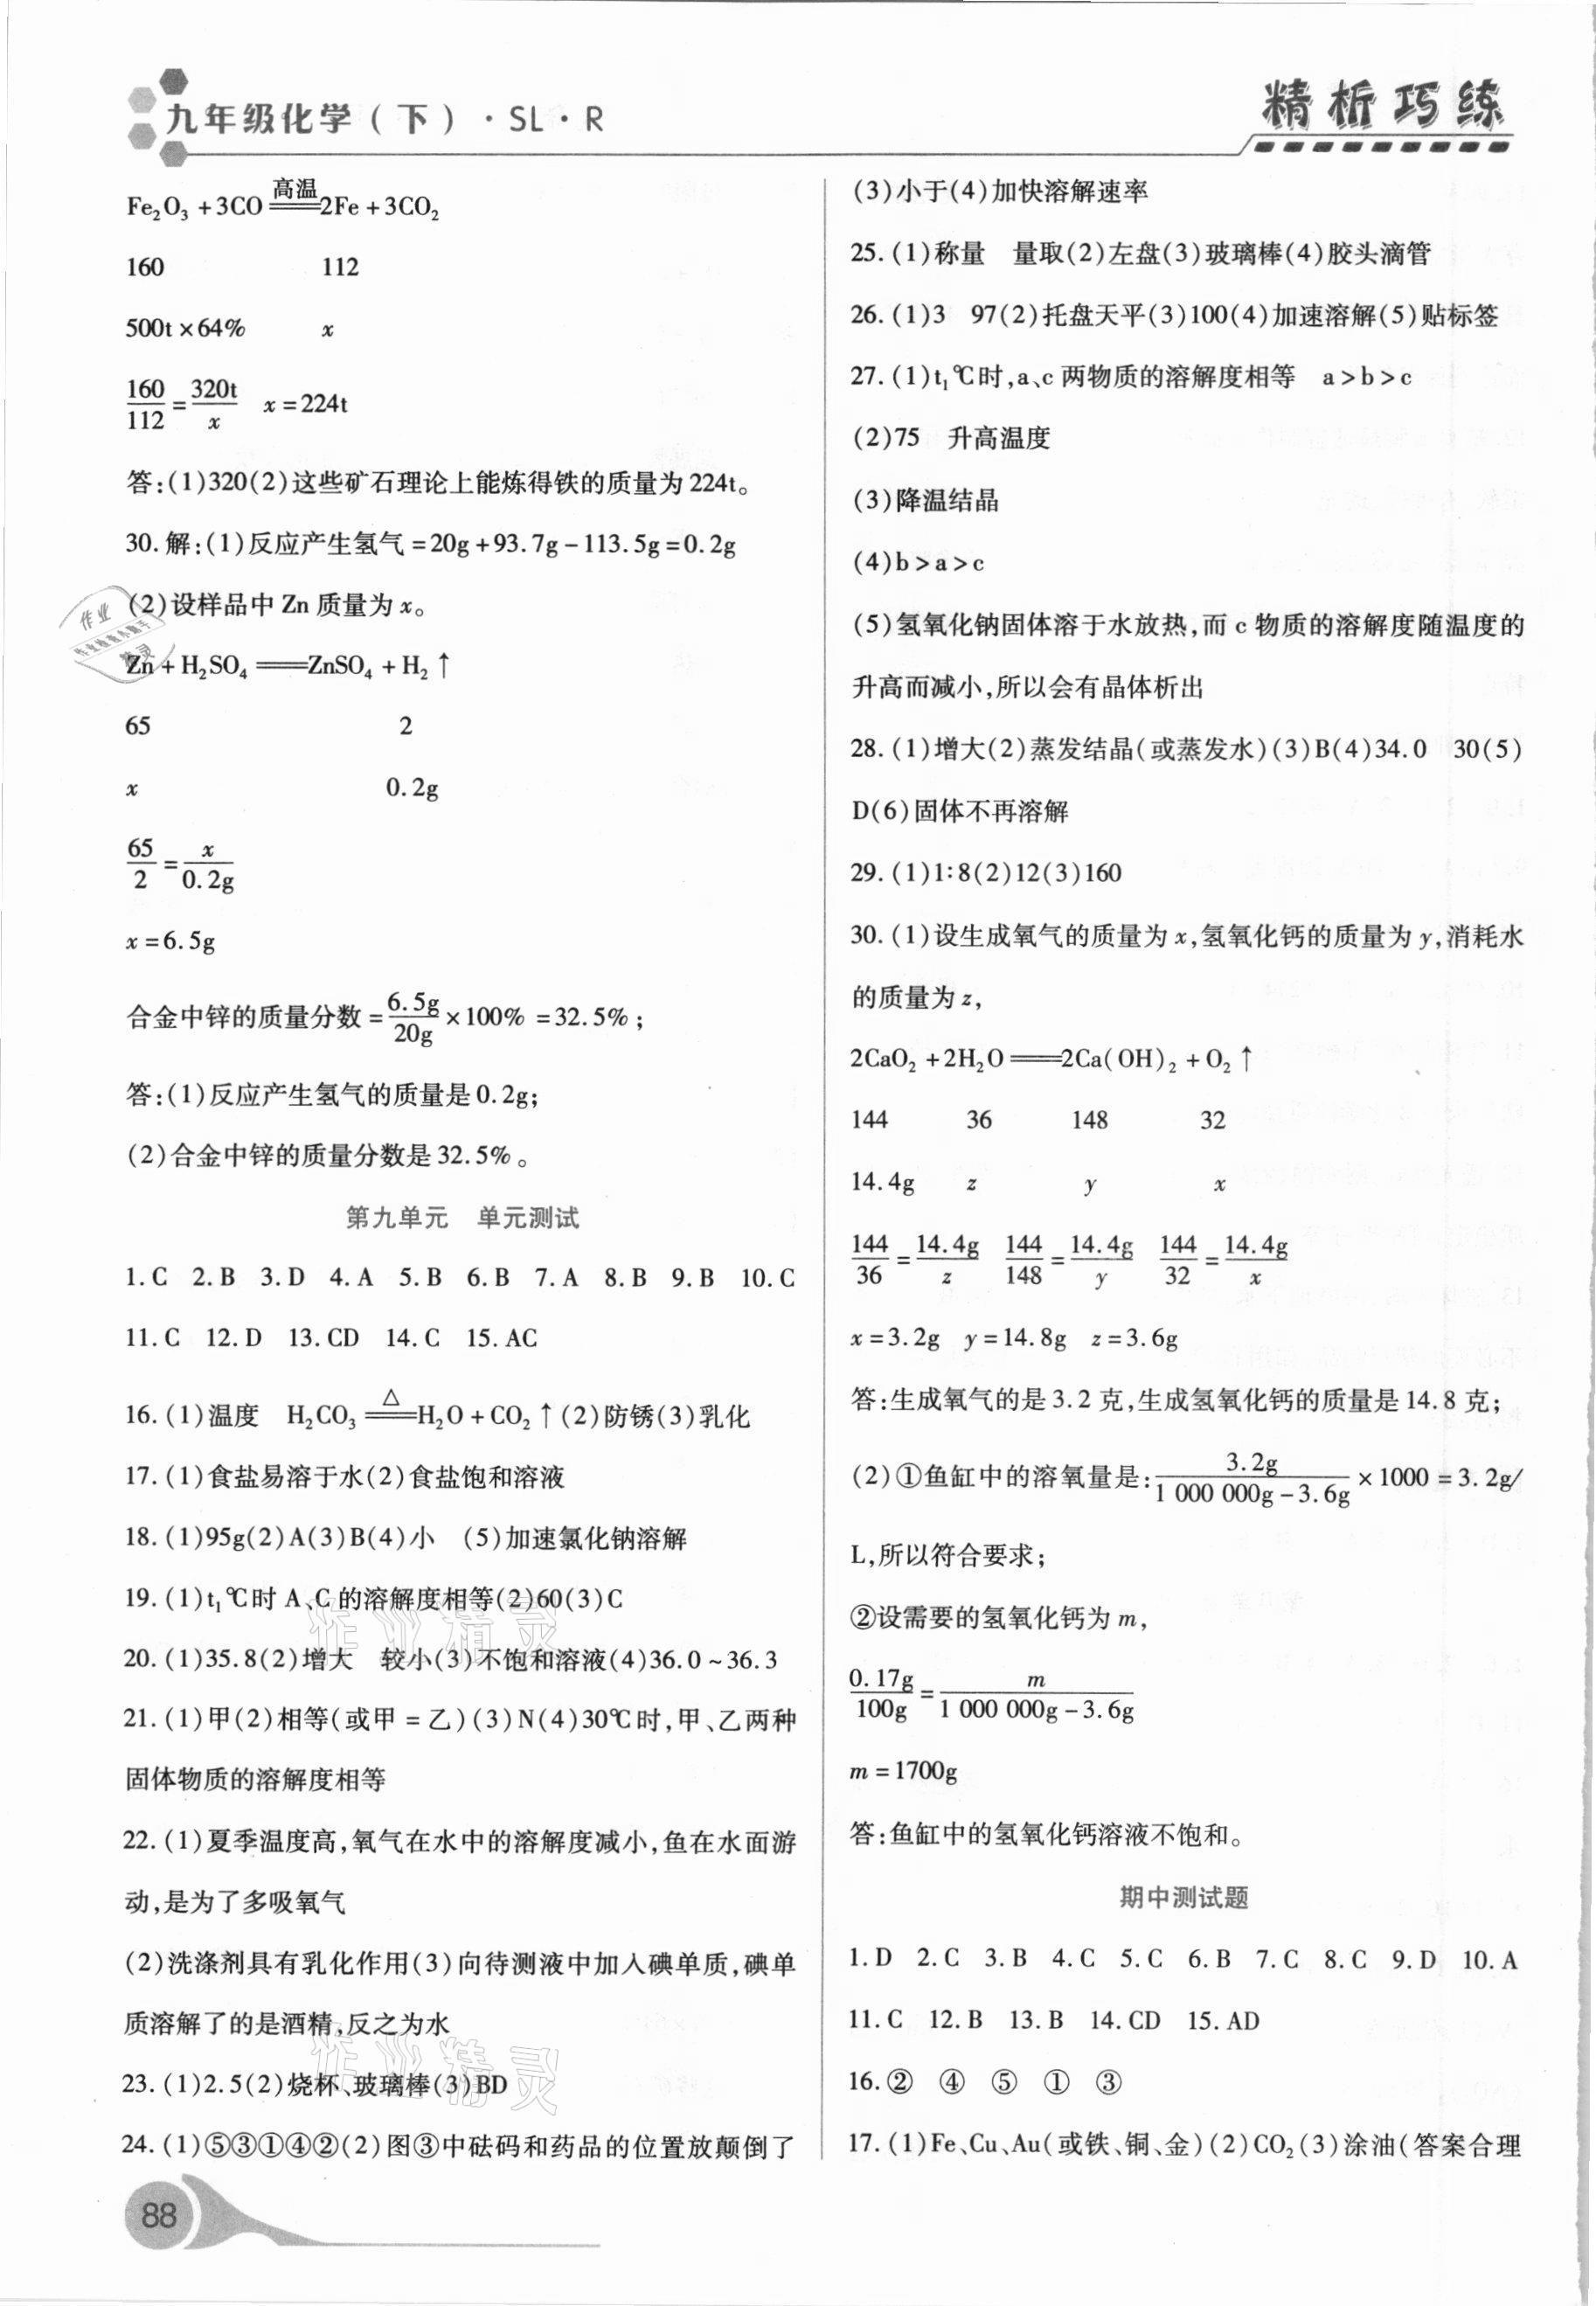 九年级化学(下)·SL·R
精析巧练
Fe₂O₃+3CO══高温══2Fe+3CO₂
160 112
500t×64% x
160/112=320t/x x=224t
答:(1)320(2)这些矿石理论上能炼得铁的质量为224t。
30.解:(1)反应产生氢气=20g+93.7g-113.5g=0.2g
(2)设样品中Zn质量为x。
Zn+H₂SO₄══ZnSO₄+H₂↑
65 2
x 0.2g
65/2=x/0.2g
x=6.5g
合金中锌的质量分数=6.5g/20g×100%=32.5%;
答:(1)反应产生氢气的质量是0.2g;
(2)合金中锌的质量分数是32.5%。
第九单元 单元测试
1.C 2.B 3.D 4.A 5.B 6.B 7.A 8.B 9.B 10.C
11.C 12.D 13.CD 14.C 15.AC
16.(1)温度 H₂CO₃══△══H₂O+CO₂↑(2)防锈(3)乳化
17.(1)食盐易溶于水(2)食盐饱和溶液
18.(1)95g(2)A(3)B(4)小 (5)加速氯化钠溶解
19.(1)t₁℃时A、C的溶解度相等(2)60(3)C
20.(1)35.8(2)增大 较小(3)不饱和溶液(4)36.0~36.3
21.(1)甲(2)相等(或甲=乙)(3)N(4)30℃时,甲、乙两种
固体物质的溶解度相等
22.(1)夏季温度高,氧气在水中的溶解度减小,鱼在水面游
动,是为了多吸氧气
(2)洗涤剂具有乳化作用(3)向待测液中加入碘单质,碘单
质溶解了的是酒精,反之为水
23.(1)2.5(2)烧杯、玻璃棒(3)BD
24.(1)⑤③①④②(2)图③中砝码和药品的位置放颠倒了
88
(3)小于(4)加快溶解速率
25.(1)称量 量取(2)左盘(3)玻璃棒(4)胶头滴管
26.(1)3 97(2)托盘天平(3)100(4)加速溶解(5)贴标签
27.(1)t₁℃时,a、c两物质的溶解度相等 a>b>c
(2)75 升高温度
(3)降温结晶
(4)b>a>c
(5)氢氧化钠固体溶于水放热,而c物质的溶解度随温度的
升高而减小,所以会有晶体析出
28.(1)增大(2)蒸发结晶(或蒸发水)(3)B(4)34.0 30(5)
D(6)固体不再溶解
29.(1)1∶8(2)12(3)160
30.(1)设生成氧气的质量为x,氢氧化钙的质量为y,消耗水
的质量为z,
2CaO₂+2H₂O══2Ca(OH)₂+O₂↑
144 36 148 32
14.4g z y x
144/36=14.4g/z 144/148=14.4g/y 144/32=14.4g/x
x=3.2g y=14.8g z=3.6g
答:生成氧气的是3.2克,生成氢氧化钙的质量是14.8克;
(2)①鱼缸中的溶氧量是:3.2g/1 000 000g-3.6g×1000=3.2g/
L,所以符合要求;
②设需要的氢氧化钙为m,
0.17g/100g=m/1 000 000g-3.6g
m=1700g
答:鱼缸中的氢氧化钙溶液不饱和。
期中测试题
1.D 2.C 3.B 4.C 5.C 6.B 7.C 8.C 9.D 10.A
11.C 12.B 13.B 14.CD 15.AD
16.② ④ ⑤ ① ③
17.(1)Fe、Cu、Au(或铁、铜、金)(2)CO₂(3)涂油(答案合理
作业精灵
作业精灵